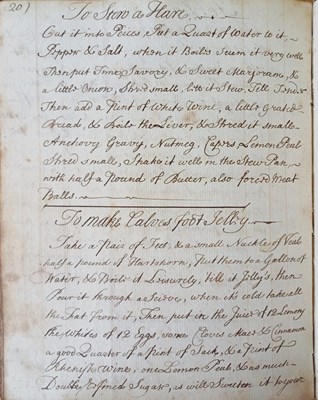 20)
To Stew a Hare
Cut it into Peices, Put a Quart of Water to it
Pepper & Salt, when it Boiles Scum it very well
Then put Time, Savory, & Sweet Marjoram, &
a little Onion, Shred small, let it Stew, till Tender
Then add a Pint of White Wine, a little grated
Bread, & Boile the Liver, & Shred it small
Anchovy Gravy, Nutmeg, Capers Limon Peel
Shred small, Shake it well in the Stew Pan,
with half a Pound of Butter, also forced Meat
Balls.
To make Calves foot Jelley
Take a Pair of Feet, & a small Nuckle of Veal
half a pound of Hartshorn, Put them to a Gallon of
Water, & Boile it Leisurely, till it Jelley's, then
Pour it through a Seive, when its Cold take all
the Fat from it, Then put in the Juice of 12 Lemons
the Whites of 12 Eggs, some Cloves Mace & Cinnamon
a good Quarter of a Pint of Sack, & a Pint of
Rhenish Wine, one Lemon Peel, & as much
Double Refined Sugar, as will Sweeten it to your